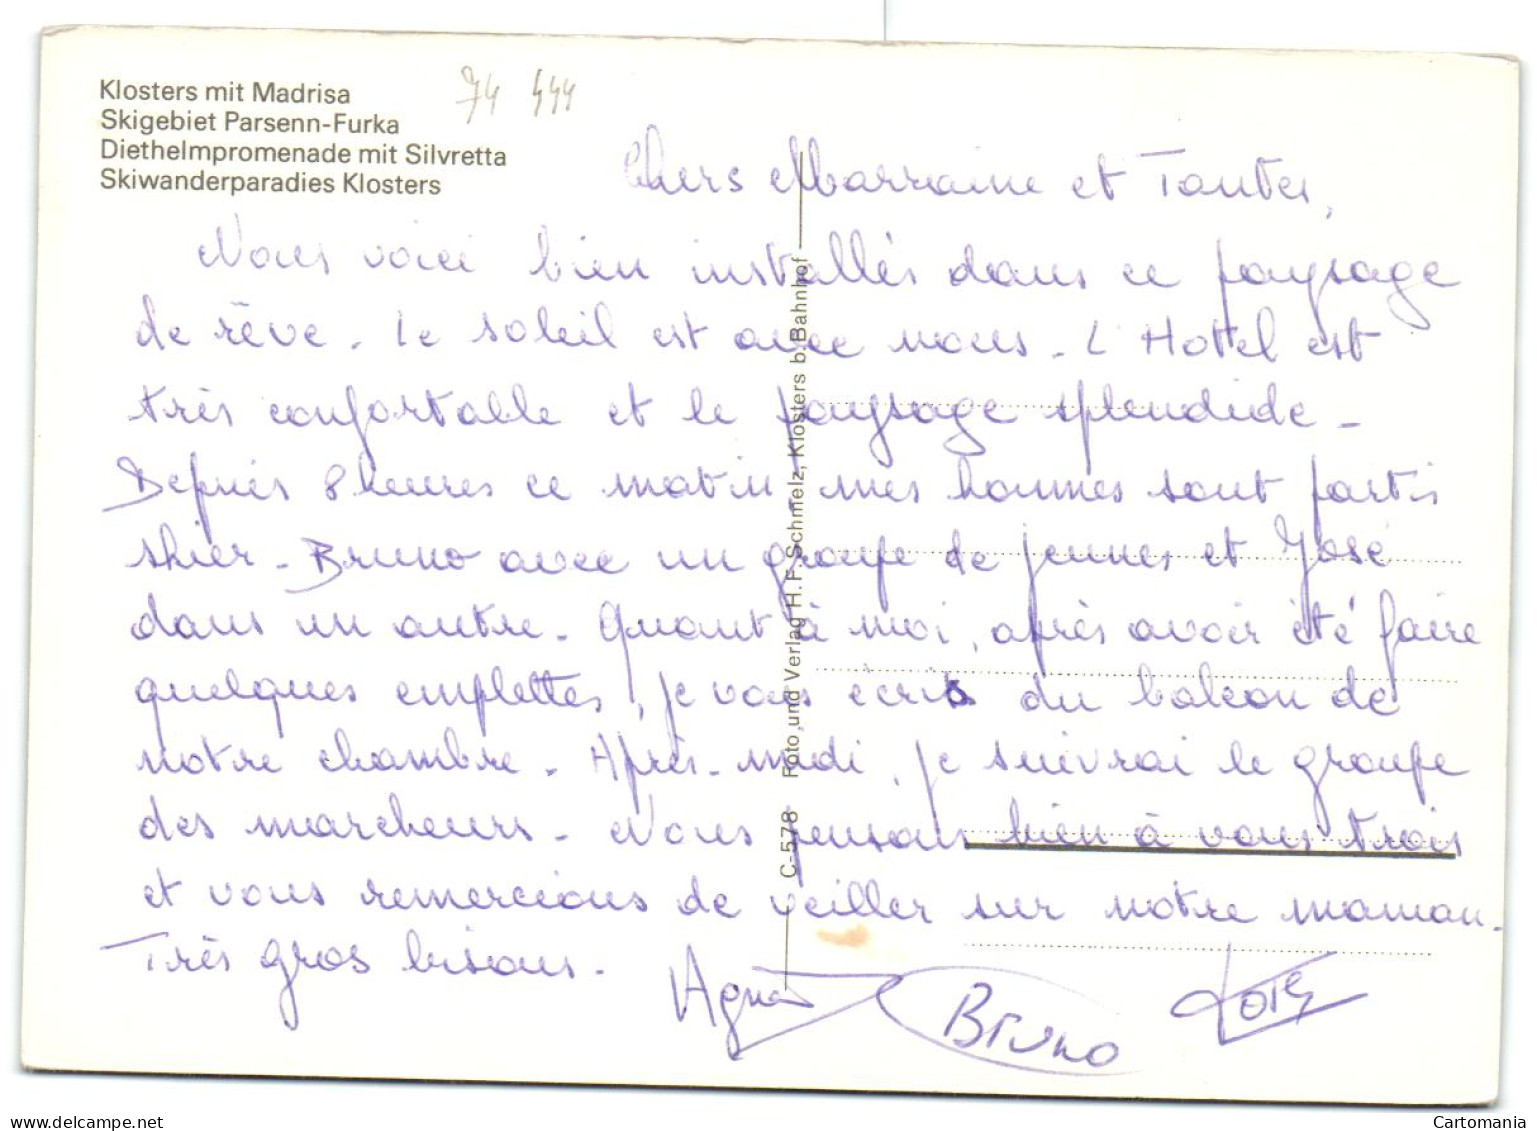 Klosters mit Madrisa
Skigebiet Parsenn-Furka
Diethelmpromenade mit Silvretta
Skiwanderparadies Klosters
74 444
Chers Marraine et Tantes,
Nous voici bien installés dans ce paysage
de rêve. Le soleil est avec nous. L'Hotel est
très confortable et le paysage splendide -
Depuis 8 heures ce matin, mes hommes sont partis
skier - Bruno avec un groupe de jeunes et José
dans un autre. Quant à moi, après avoir été faire
quelques emplettes, je vous écris du balcon de
notre chambre. Après-midi, je suivrai le groupe
des marcheurs. Nous pensons bien à vous trois
et vous remercions de veiller sur notre maman.
Très gros bisous.
Agnès
Bruno
José
C-578 Foto und Verlag H. F. Schmelz, Klosters b. Bahnhof
delcampe.net
Cartomania